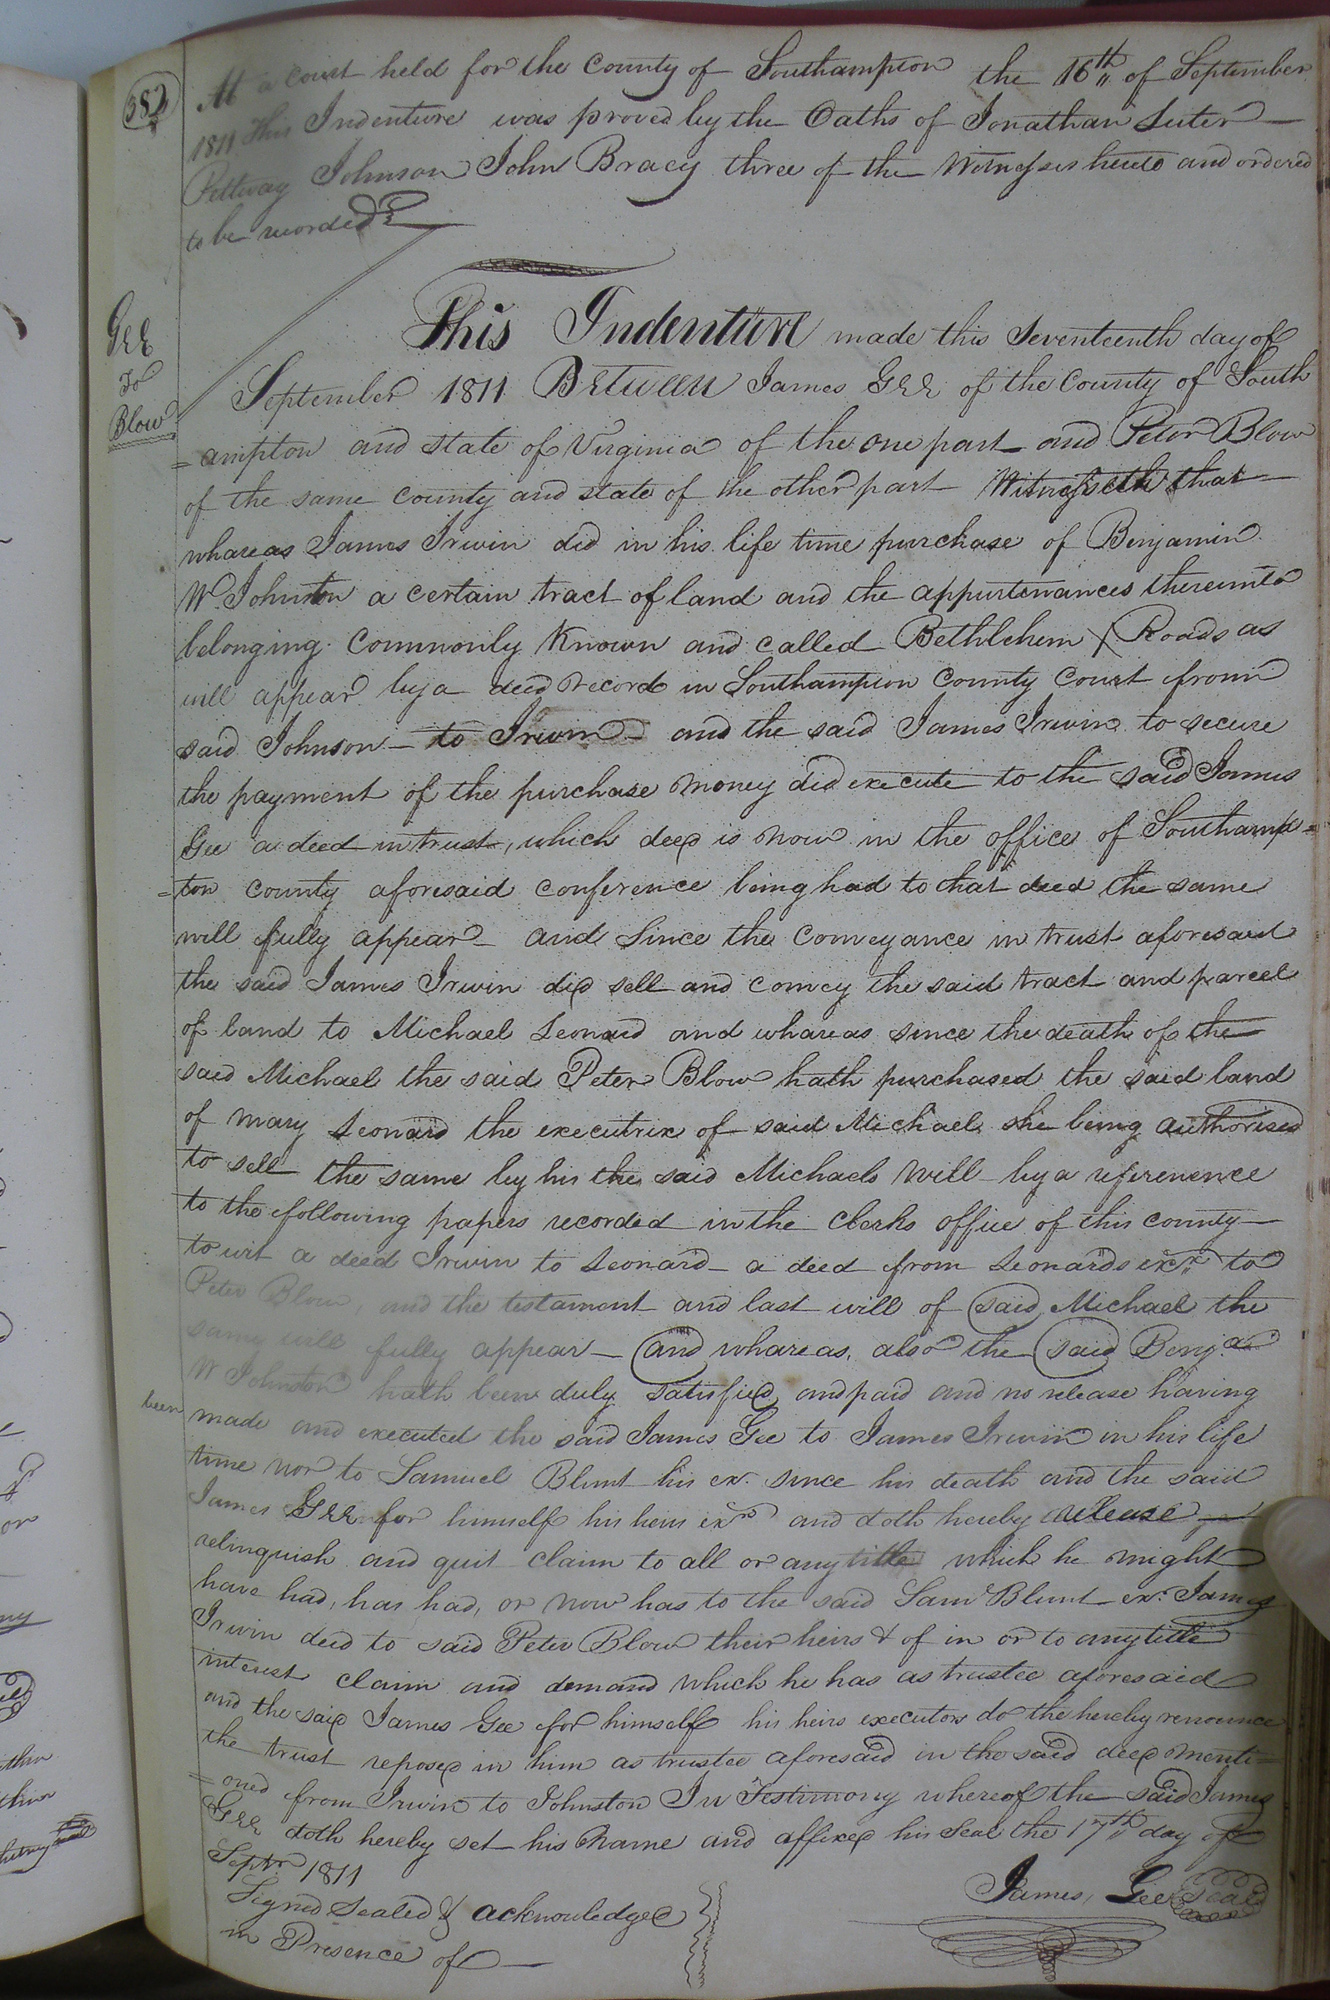 382
At a court held for the County of Southampton the 16th of September
1811 This Indenture was proved by the Oaths of Jonathan Luter
Pettway Johnson John Bracy three of the Witnesses hereto and ordered
to be recorded
Gee
To
Blow
This Indenture made this Seventeenth day of
September 1811 Between James Gee of the County of South
=ampton and state of Virginia of the one part and Peter Blow
of the same county and state of the other part Witnesseth that
whareas James Irwin did in his life time purchase of Benjamin
W. Johnston a certain tract of land and the appurtenances thereunto
belonging Commonly Known and called Bethlehem X Roads as
will appear by a deed record in Southampton County Court from
said Johnson - to Irwin - and the said James Irwin to secure
the payment of the purchase money did execute to the said James
Gee a deed in trust, which deed is now in the office of Southamp=
=ton county aforesaid conference being had to that deed the same
will fully appear - and Since the Conveyance in trust aforesaid
the said James Irwin did sell and convey the said tract and parcel
of land to Michael Leonard and whareas since the death of the
said Michael the said Peter Blow hath purchased the said land
of Mary Leonard the executrix of said Michael she being authorised
to sell the same by his the said Michaels Will - by a reference
to the following papers recorded in the clerks office of this county -
to wit a deed Irwin to Leonard - a deed from Leonards exr to
Peter Blow, and the testament and last will of said Michael the
same will fully appear - and whareas, also the said Benja
W Johnston hath been duly satisfied and paid and no release having
been made and executed the said James Gee to James Irwin in his life
time nor to Samuel Blunt his ex. since his death and the said
James Gee for himself his heirs exrs and doth hereby release
relinquish and quit claim to all or any title which he might
have had, has had, or now has to the said Saml Blunt ex. James
Irwin decd to said Peter Blow their heirs & of in or to any title
interest claim and demand which he has as trustee aforesaid
and the said James Gee for himself his heirs executors do the hereby renounce
the trust reposed in him as trustee aforesaid in the said deed menti=
=oned from Irwin to Johnston In Testimony whereof the said James
Gee doth hereby set his Name and affixed his Seal the 17th day of
Septr 1811
Signed Sealed & acknowledged
in Presence of -
James Gee Seal